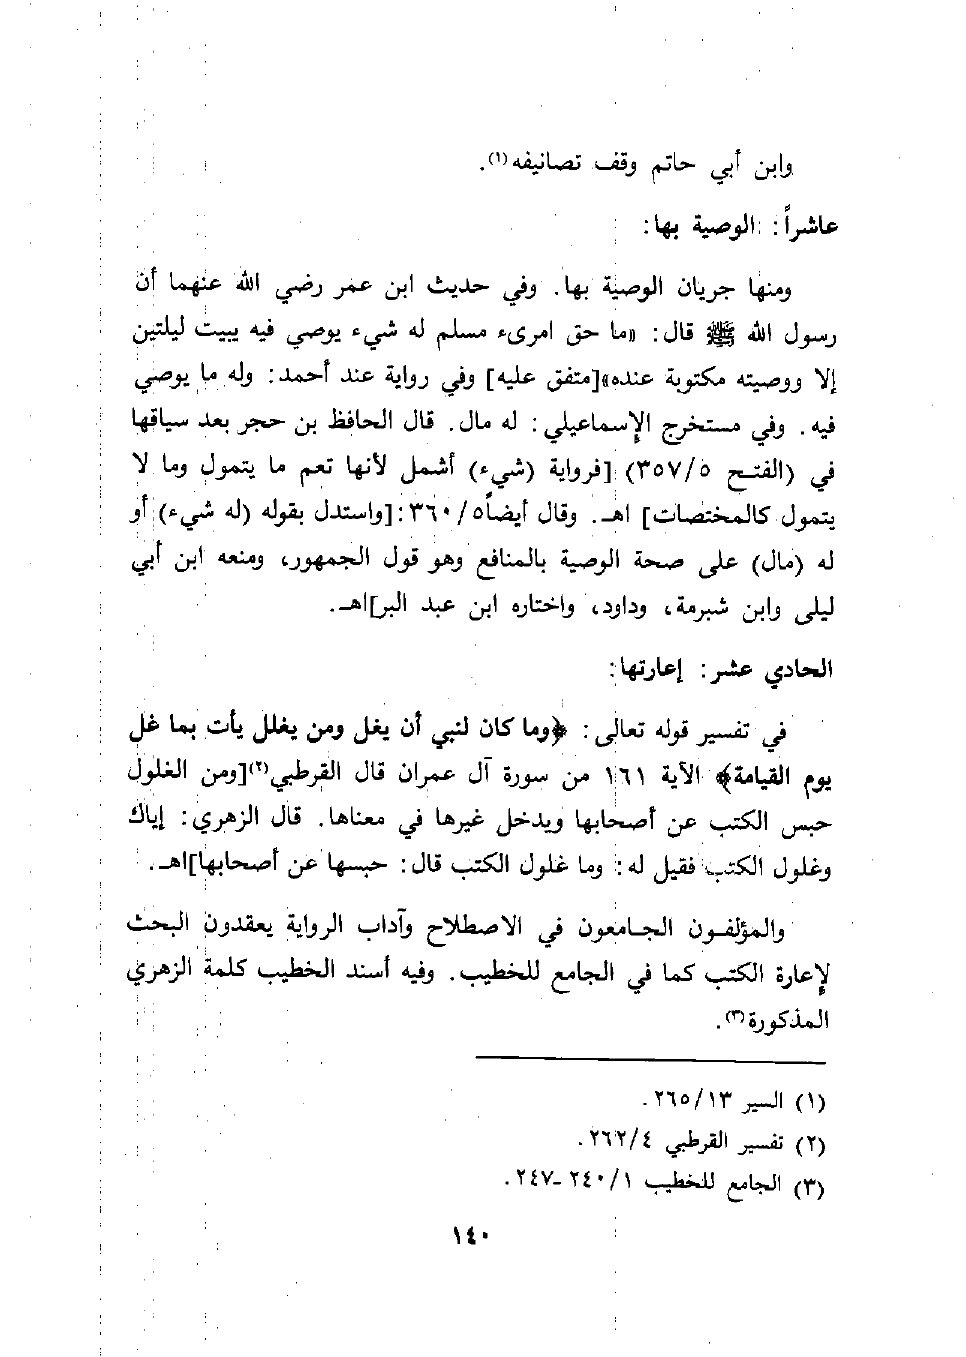 وابن أبي حاتم وقف تصانيفه(١).
عاشراً: الوصية بها:
ومنها جريان الوصية بها. وفي حديث ابن عمر رضي الله عنهما أن
رسول الله ﷺ قال: «ما حق امرىء مسلم له شيء يوصي فيه يبيت ليلتين
إلا ووصيته مكتوبة عنده»[متفق عليه] وفي رواية عند أحمد: وله ما يوصي
فيه. وفي مستخرج الإسماعيلي: له مال. قال الحافظ بن حجر بعد سياقها
في (الفتح ٣٥٧/٥) [فرواية (شيء) أشمل لأنها تعم ما يتمول وما لا
يتمول كالمختصات] اهـ. وقال أيضاً٣٦٠/٥:[واستدل بقوله (له شيء) أو
له (مال) على صحة الوصية بالمنافع وهو قول الجمهور، ومنعه ابن أبي
ليلى وابن شبرمة، وداود، واختاره ابن عبد البر]اهـ.
الحادي عشر: إعارتها:
في تفسير قوله تعالى: ﴿وما كان لنبي أن يغل ومن يغلل يأت بما غل
يوم القيامة﴾ الآية ١٦١ من سورة آل عمران قال القرطبي(٢)[ومن الغلول
حبس الكتب عن أصحابها ويدخل غيرها في معناها. قال الزهري: إياك
وغلول الكتب فقيل له: وما غلول الكتب قال: حبسها عن أصحابها]اهـ.
والمؤلفون الجامعون في الاصطلاح وآداب الرواية يعقدون البحث
لإعارة الكتب كما في الجامع للخطيب. وفيه أسند الخطيب كلمة الزهري
المذكورة(٣).
(١) السير ٢٦٥/١٣.
(٢) تفسير القرطبي ٢٦٢/٤.
(٣) الجامع للخطيب ٢٤٠/١ـ٢٤٧.
١٤٠